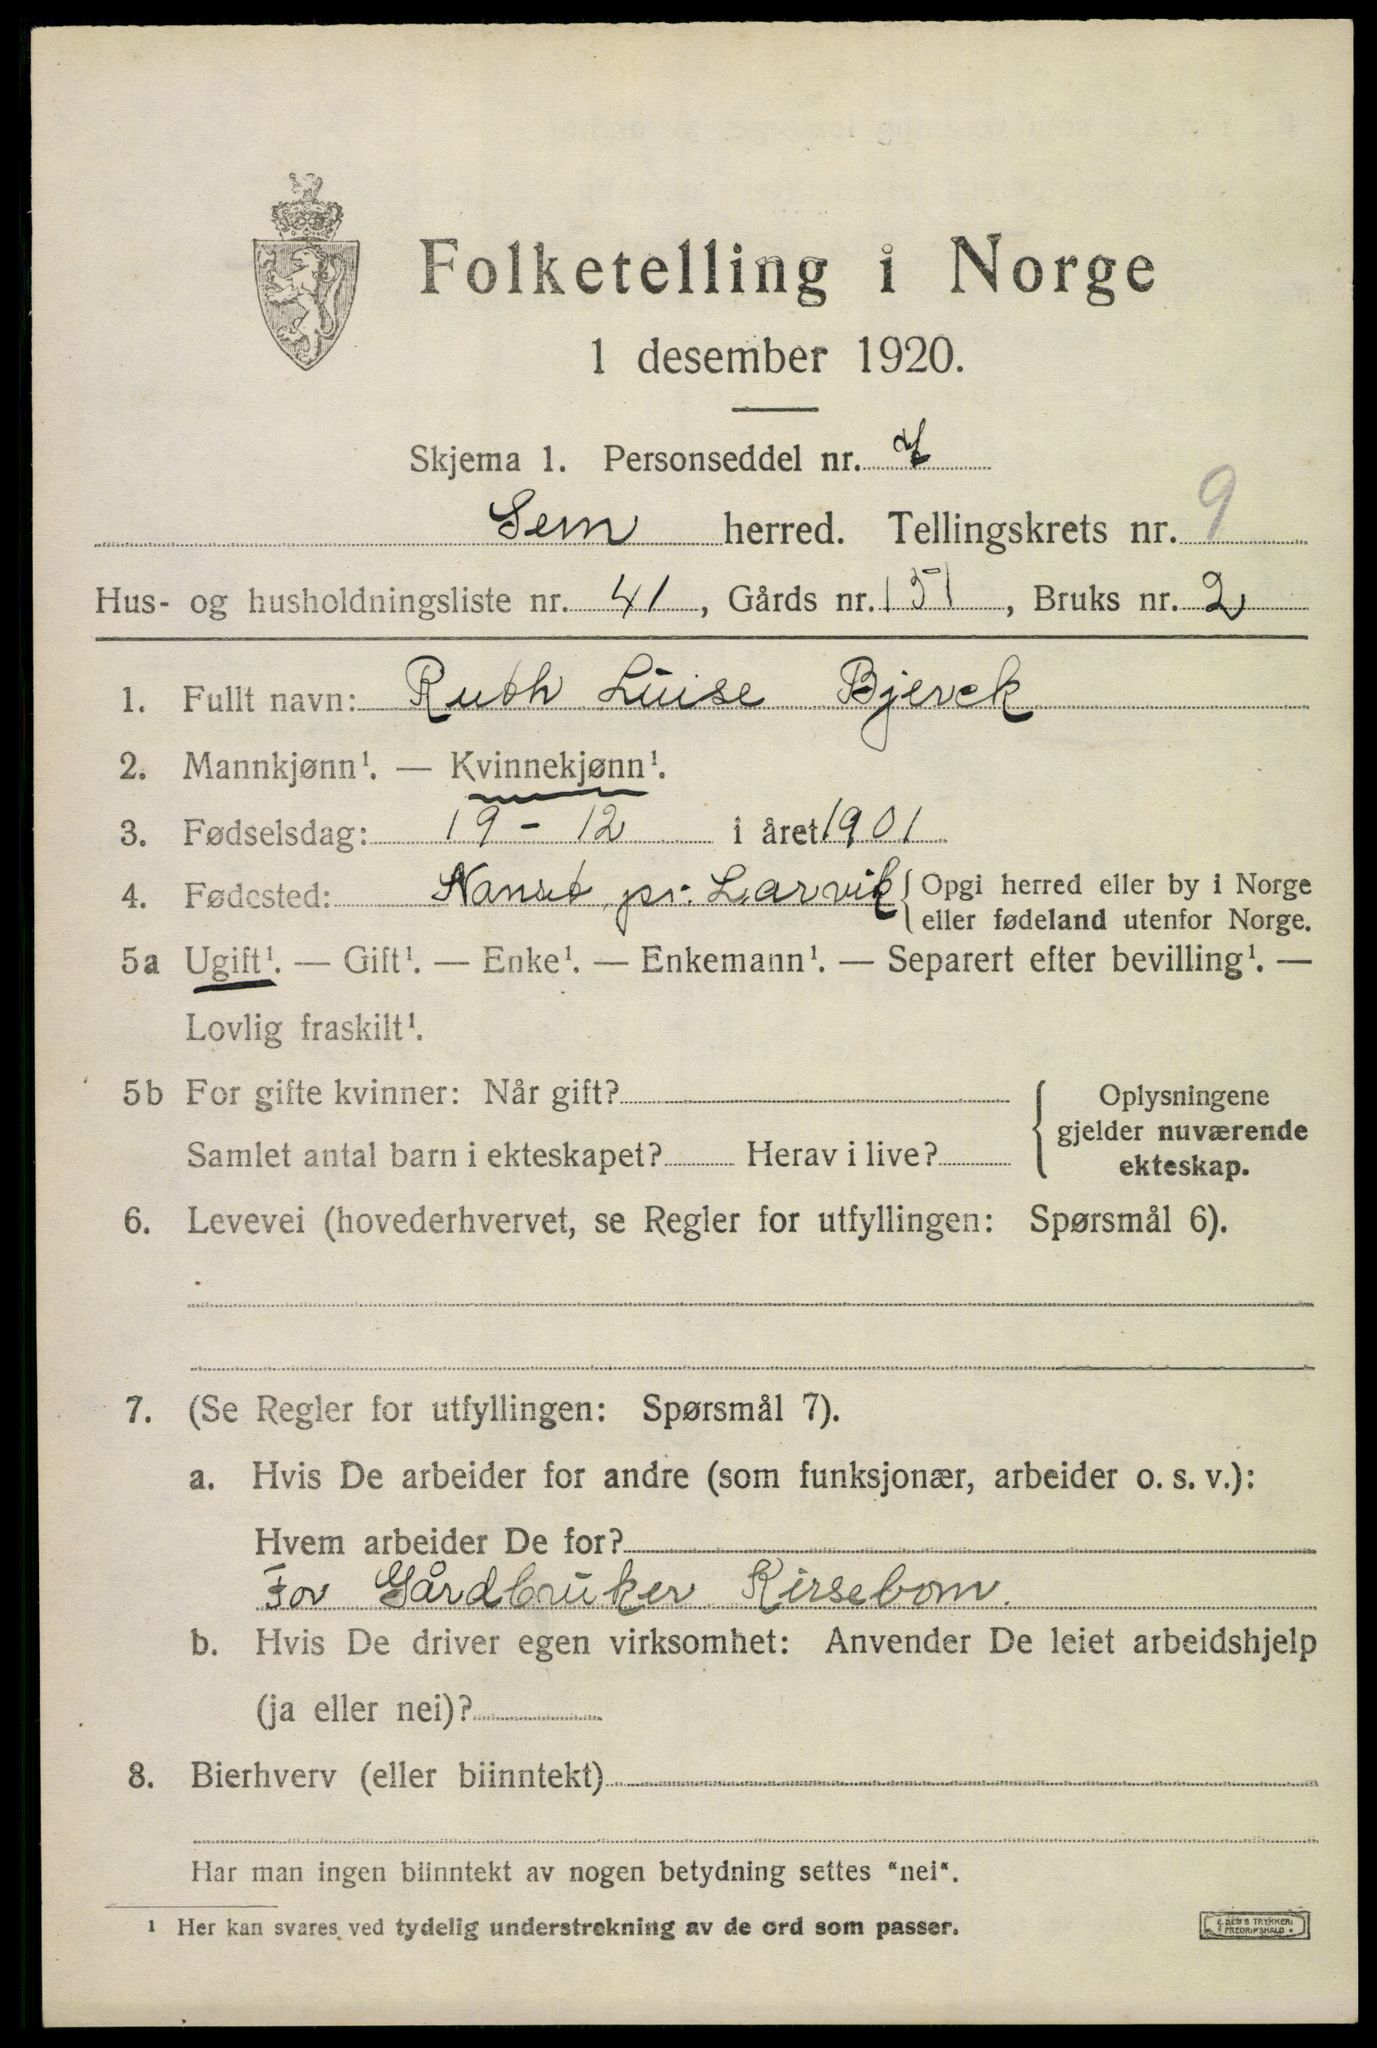 Folketelling i Norge
1 desember 1920.
Skjema 1. Personseddel nr.
Sem herred. Tellingskrets nr. 9
Hus- og husholdningsliste nr. 41, Gårds nr. 151, Bruks nr. 2
1. Fullt navn: Ruth Luise Bjerck
2. Mannkjønn¹. — Kvinnekjønn¹.
3. Fødselsdag: 19 - 12 i året 1901
4. Fødested: Nanset pr. Larvik { Opgi herred eller by i Norge
eller fødeland utenfor Norge.
5a Ugift¹. — Gift¹. — Enke¹. — Enkemann¹. — Separert efter bevilling¹. —
Lovlig fraskilt¹.
5b For gifte kvinner: Når gift?
Samlet antal barn i ekteskapet? Herav i live?
Oplysningene
gjelder nuværende
ekteskap.
6. Levevei (hovederhvervet, se Regler for utfyllingen: Spørsmål 6).
7. (Se Regler for utfyllingen: Spørsmål 7).
a. Hvis De arbeider for andre (som funksjonær, arbeider o. s. v.):
Hvem arbeider De for?
For Gårdbruker Kirsebom.
b. Hvis De driver egen virksomhet: Anvender De leiet arbeidshjelp
(ja eller nei)?
8. Bierhverv (eller biinntekt)
Har man ingen biinntekt av nogen betydning settes "nei".
¹ Her kan svares ved tydelig understrekning av de ord som passer.
E. SEM'S TRYKKERI
FREDRIKSHALD